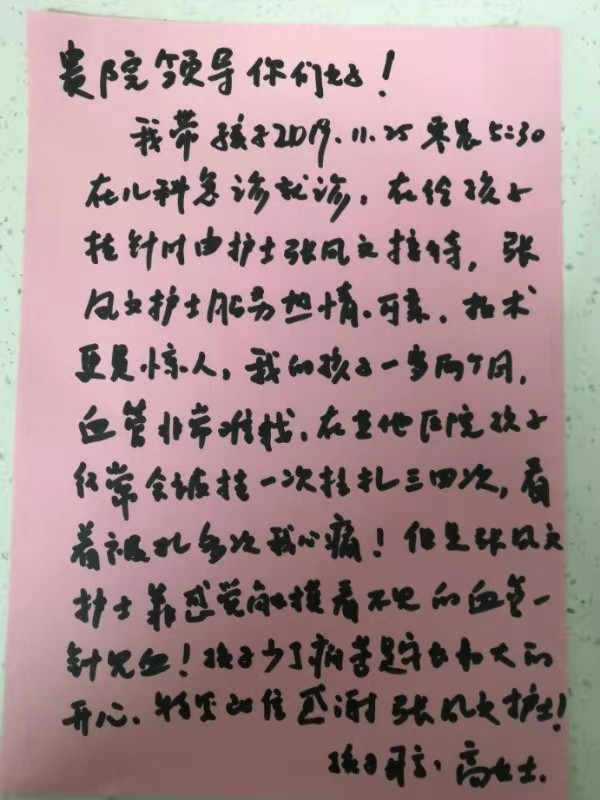 贵院领导你们好！
我带孩子2019.11.25凌晨5:30
在儿科急诊就诊，在给孩子
挂针时由护士张凤文接待，张
凤文护士服务热情.可亲，技术
更是惊人，我的孩子一岁两个月，
血管非常难找，在当地医院孩子
经常会被挂一次挂扎三四次，看
着被扎多次我心痛！但是张凤文
护士靠感觉触摸看不见的血管一
针见血！孩子少了痛苦是家长大的
开心.特写此信感谢张凤文护士！
孩子家长：高女士.